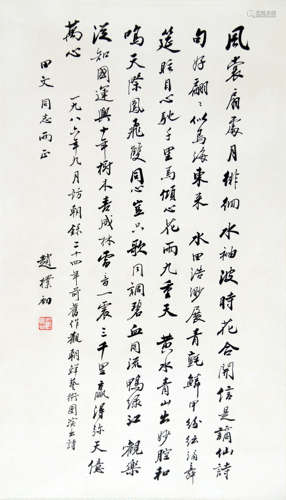 風裳扇處月徘徊水袖波時花合開信是謫仙詩
句好翩翩似烏海東來 水田浩渺展青氈鮮
筵眩目心馳千里馬傾心花雨九重天 黄水青山出妙腔和
鳴天際鳳飛雙同心豈只歌同調碧血同流鴨綠江 觀樂
從知國運興十年樹木喜成林雷音一震三千里贏得弥天億
萬心
田文同志兩正
一九八六年九月訪朝錄二十四年前舊作觀朝鮮藝術團演出詩
趙樸初